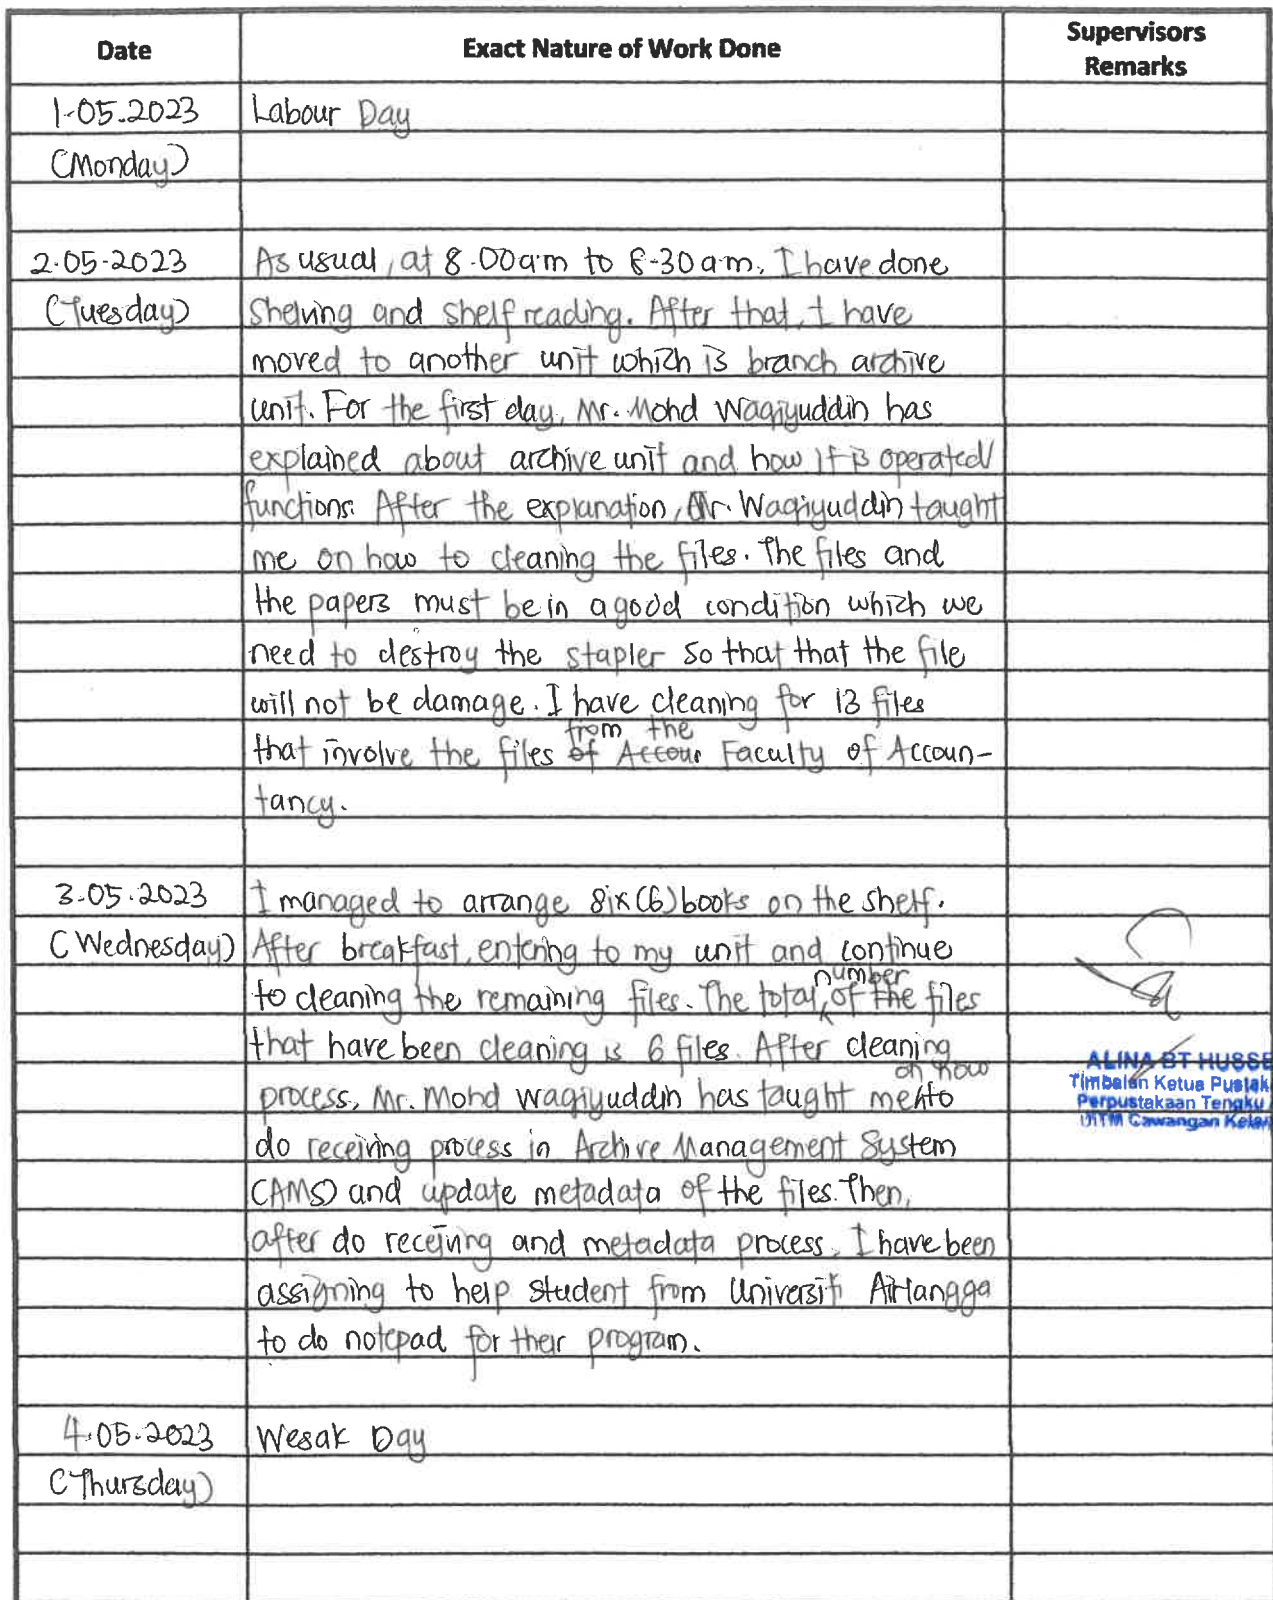 Date Exact Nature of Work Done Supervisors Remarks
1.05.2023 Labour Day
(Monday)
2.05.2023 As usual, at 8.00am to 8.30am, I have done
(Tuesday) shelving and shelf reading. After that, I have
moved to another unit which is branch archive
unit. For the first day, Mr. Mohd Waqiyuddin has
explained about archive unit and how it is operated/
functions. After the explanation, Mr. Waqiyuddin taught
me on how to cleaning the files. The files and
the papers must be in a good condition which we
need to destroy the stapler so that that the file
will not be damage. I have cleaning for 13 files
that involve the files from the Faculty of Accoun-
tancy.
3.05.2023 I managed to arrange six (6) books on the shelf.
(Wednesday) After breakfast, entering to my unit and continue
to cleaning the remaining files. The total number of the files
that have been cleaning is 6 files. After cleaning
process, Mr. Mohd Waqiyuddin has taught me on how to
ALINA BT HUSSE
Timbalan Ketua Pustak
Perpustakaan Tengku
UiTM Cawangan Kelan
do receiving process in Archive Management System
(AMS) and update metadata of the files. Then,
after do receiving and metadata process, I have been
assigning to help student from Universiti Airlangga
to do notepad for their program.
4.05.2023 Wesak Day
(Thursday)